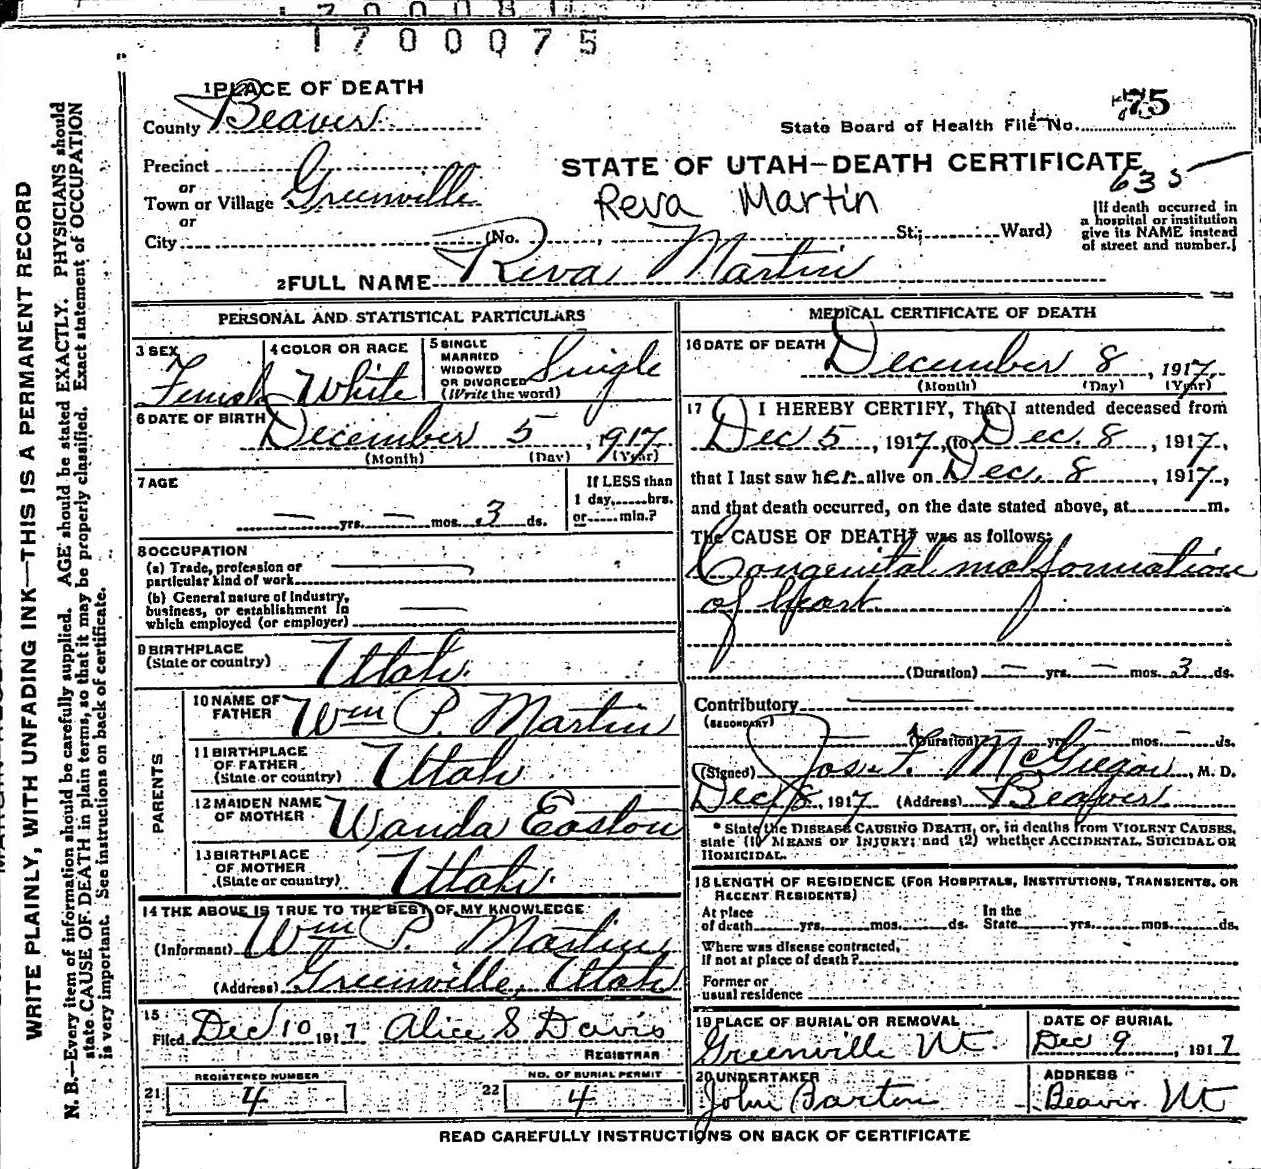 1700075
1 PLACE OF DEATH
County Beaver
State Board of Health File No. 75
Precinct
or
Town or Village Greenville
or
City (No. , St; Ward)
STATE OF UTAH—DEATH CERTIFICATE
635
Reva Martin
[If death occurred in
a hospital or institution
give its NAME instead
of street and number.]
2 FULL NAME Reva Martin
PERSONAL AND STATISTICAL PARTICULARS
3 SEX Female
4 COLOR OR RACE White
5 SINGLE
MARRIED
WIDOWED
OR DIVORCED
(Write the word) Single
6 DATE OF BIRTH December 5, 1917
(Month) (Day) (Year)
7 AGE
— yrs. — mos. 3 ds.
If LESS than
1 day, hrs.
or min.?
8 OCCUPATION
(a) Trade, profession or
particular kind of work
(b) General nature of Industry,
business, or establishment in
which employed (or employer)
9 BIRTHPLACE
(State or country) Utah.
PARENTS
10 NAME OF
FATHER Wm P. Martin
11 BIRTHPLACE
OF FATHER
(State or country) Utah
12 MAIDEN NAME
OF MOTHER Wanda Easton
13 BIRTHPLACE
OF MOTHER
(State or country) Utah.
14 THE ABOVE IS TRUE TO THE BEST OF MY KNOWLEDGE
(Informant) Wm P. Martin
(Address) Greenville, Utah
15
Filed Dec 10 1917 Alice S Davis
REGISTRAR
REGISTERED NUMBER
21 4
NO. OF BURIAL PERMIT
22 4
MEDICAL CERTIFICATE OF DEATH
16 DATE OF DEATH December 8, 1917
(Month) (Day) (Year)
17 I HEREBY CERTIFY, That I attended deceased from
Dec 5, 1917, to Dec. 8, 1917,
that I last saw her alive on Dec. 8, 1917,
and that death occurred, on the date stated above, at m.
The CAUSE OF DEATH* was as follows:
Congenital malformation
of heart
(Duration) — yrs. — mos. 3 ds.
Contributory
(SECONDARY)
(Duration) — yrs. — mos. — ds.
(Signed) Jos. F. McGregor, M. D.
Dec 8, 1917 (Address) Beaver
* State the DISEASE CAUSING DEATH, or, in deaths from VIOLENT CAUSES,
state (1) MEANS OF INJURY; and (2) whether ACCIDENTAL, SUICIDAL OR
HOMICIDAL.
18 LENGTH OF RESIDENCE (FOR HOSPITALS, INSTITUTIONS, TRANSIENTS, OR
RECENT RESIDENTS)
At place
of death yrs. mos. ds.
In the
State yrs. mos. ds.
Where was disease contracted,
if not at place of death?
Former or
usual residence
19 PLACE OF BURIAL OR REMOVAL
Greenville Ut.
DATE OF BURIAL
Dec 9, 1917
20 UNDERTAKER
John Barton
ADDRESS
Beaver Ut
READ CAREFULLY INSTRUCTIONS ON BACK OF CERTIFICATE
WRITE PLAINLY, WITH UNFADING INK—THIS IS A PERMANENT RECORD
N. B.—Every item of information should be carefully supplied. AGE should be stated EXACTLY. PHYSICIANS should
state CAUSE OF DEATH in plain terms, so that it may be properly classified. Exact statement of OCCUPATION
is very important. See instructions on back of certificate.